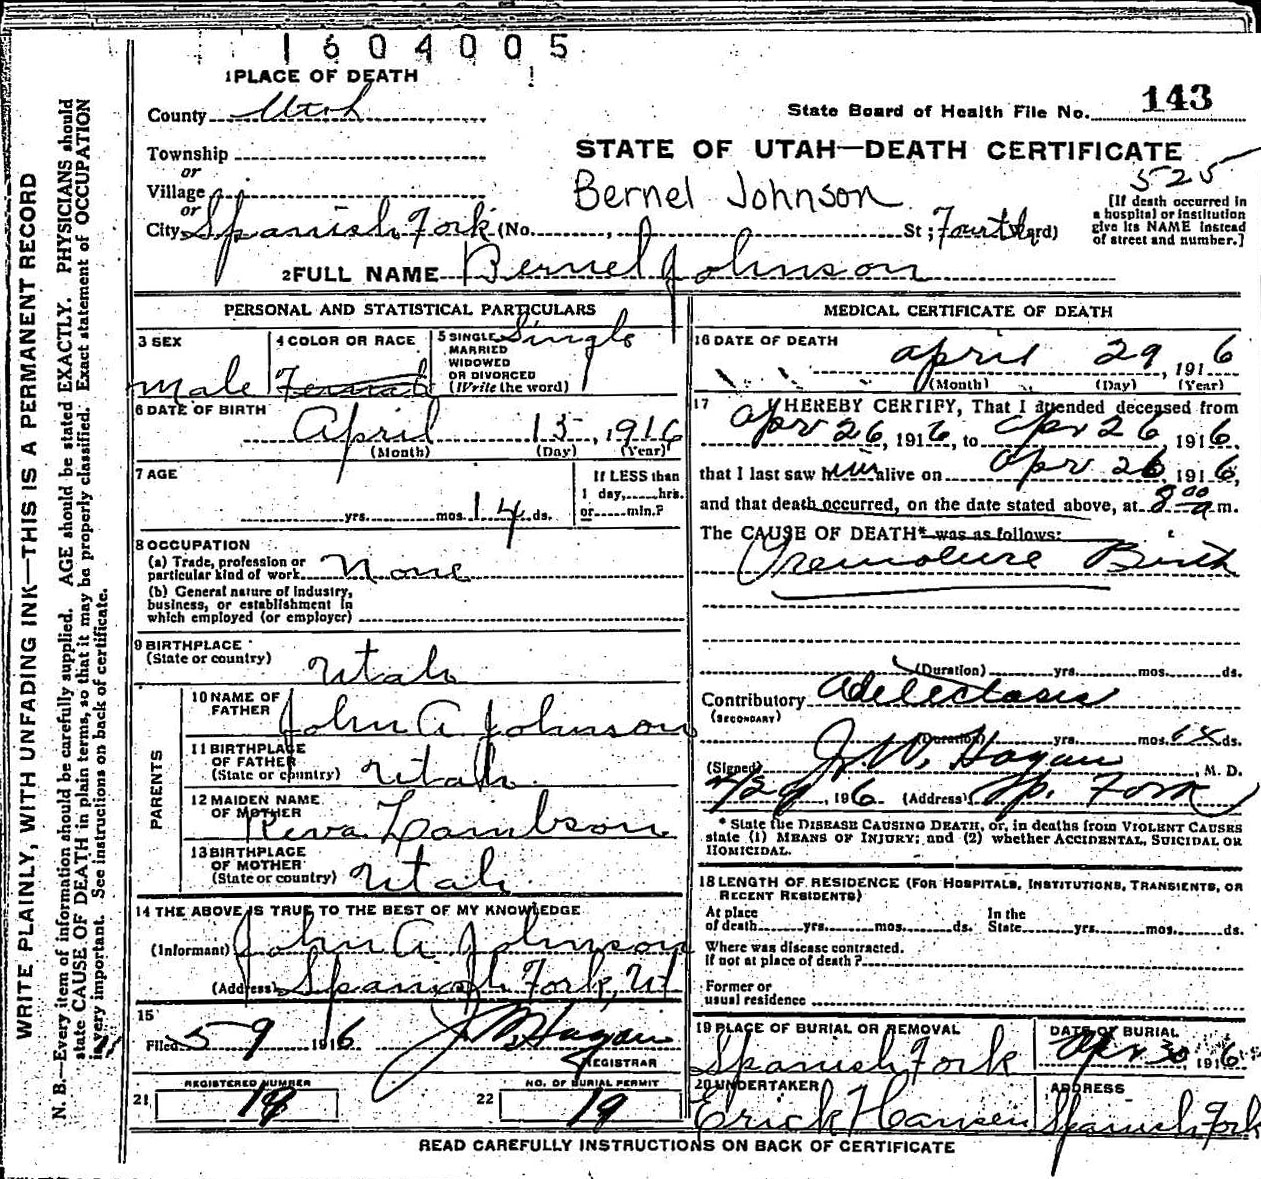 1604005
1 PLACE OF DEATH
County Utah
State Board of Health File No. 143
Township
or
Village
or
City Spanish Fork (No. , St; Fourth ard)
STATE OF UTAH—DEATH CERTIFICATE
Bernel Johnson
525
[If death occurred in
a hospital or institution
give its NAME instead
of street and number.]
2 FULL NAME Bernel Johnson
PERSONAL AND STATISTICAL PARTICULARS
3 SEX
male
4 COLOR OR RACE
5 SINGLE
MARRIED
WIDOWED
OR DIVORCED
(Write the word)
Single
6 DATE OF BIRTH
April 15, 1916
(Month) (Day) (Year)
7 AGE
yrs. mos. 14 ds.
If LESS than
1 day, hrs.
or min.?
8 OCCUPATION
(a) Trade, profession or
particular kind of work None
(b) General nature of industry,
business, or establishment in
which employed (or employer)
9 BIRTHPLACE
(State or country) Utah
PARENTS
10 NAME OF
FATHER John A Johnson
11 BIRTHPLACE
OF FATHER
(State or country) Utah
12 MAIDEN NAME
OF MOTHER Reva Lambson
13 BIRTHPLACE
OF MOTHER
(State or country) Utah
14 THE ABOVE IS TRUE TO THE BEST OF MY KNOWLEDGE
(Informant) John A Johnson
(Address) Spanish Fork, Ut
15
Filed 5 9 1916 J. W. Hagan
REGISTRAR
21 REGISTERED NUMBER
22 NO. OF BURIAL PERMIT
19
MEDICAL CERTIFICATE OF DEATH
16 DATE OF DEATH
April 29, 1916
(Month) (Day) (Year)
17 I HEREBY CERTIFY, That I attended deceased from
Apr 26, 1916, to Apr 26, 1916,
that I last saw him alive on Apr 26, 1916,
and that death occurred, on the date stated above, at 8 00 a m.
The CAUSE OF DEATH* was as follows:
Premature Birth
(Duration) yrs. mos. ds.
Contributory Adelectasis
(SECONDARY)
(Duration) yrs. mos. ds.
(Signed) J. W. Hagan, M. D.
4/29, 1916 (Address) Sp. Fork
* State the DISEASE CAUSING DEATH, or, in deaths from VIOLENT CAUSES
state (1) MEANS OF INJURY; and (2) whether ACCIDENTAL, SUICIDAL OR
HOMICIDAL.
18 LENGTH OF RESIDENCE (FOR HOSPITALS, INSTITUTIONS, TRANSIENTS, OR
RECENT RESIDENTS)
At place
of death yrs. mos. ds.
In the
State yrs. mos. ds.
Where was disease contracted.
if not at place of death?
Former or
usual residence
19 PLACE OF BURIAL OR REMOVAL
Spanish Fork
DATE OF BURIAL
Apr 30, 1916
20 UNDERTAKER
Erick Hansen
ADDRESS
Spanish Fork
READ CAREFULLY INSTRUCTIONS ON BACK OF CERTIFICATE
WRITE PLAINLY, WITH UNFADING INK—THIS IS A PERMANENT RECORD
N. B.—Every item of information should be carefully supplied. AGE should be stated EXACTLY. PHYSICIANS should
state CAUSE OF DEATH in plain terms, so that it may be properly classified. Exact statement of OCCUPATION
is very important. See instructions on back of certificate.